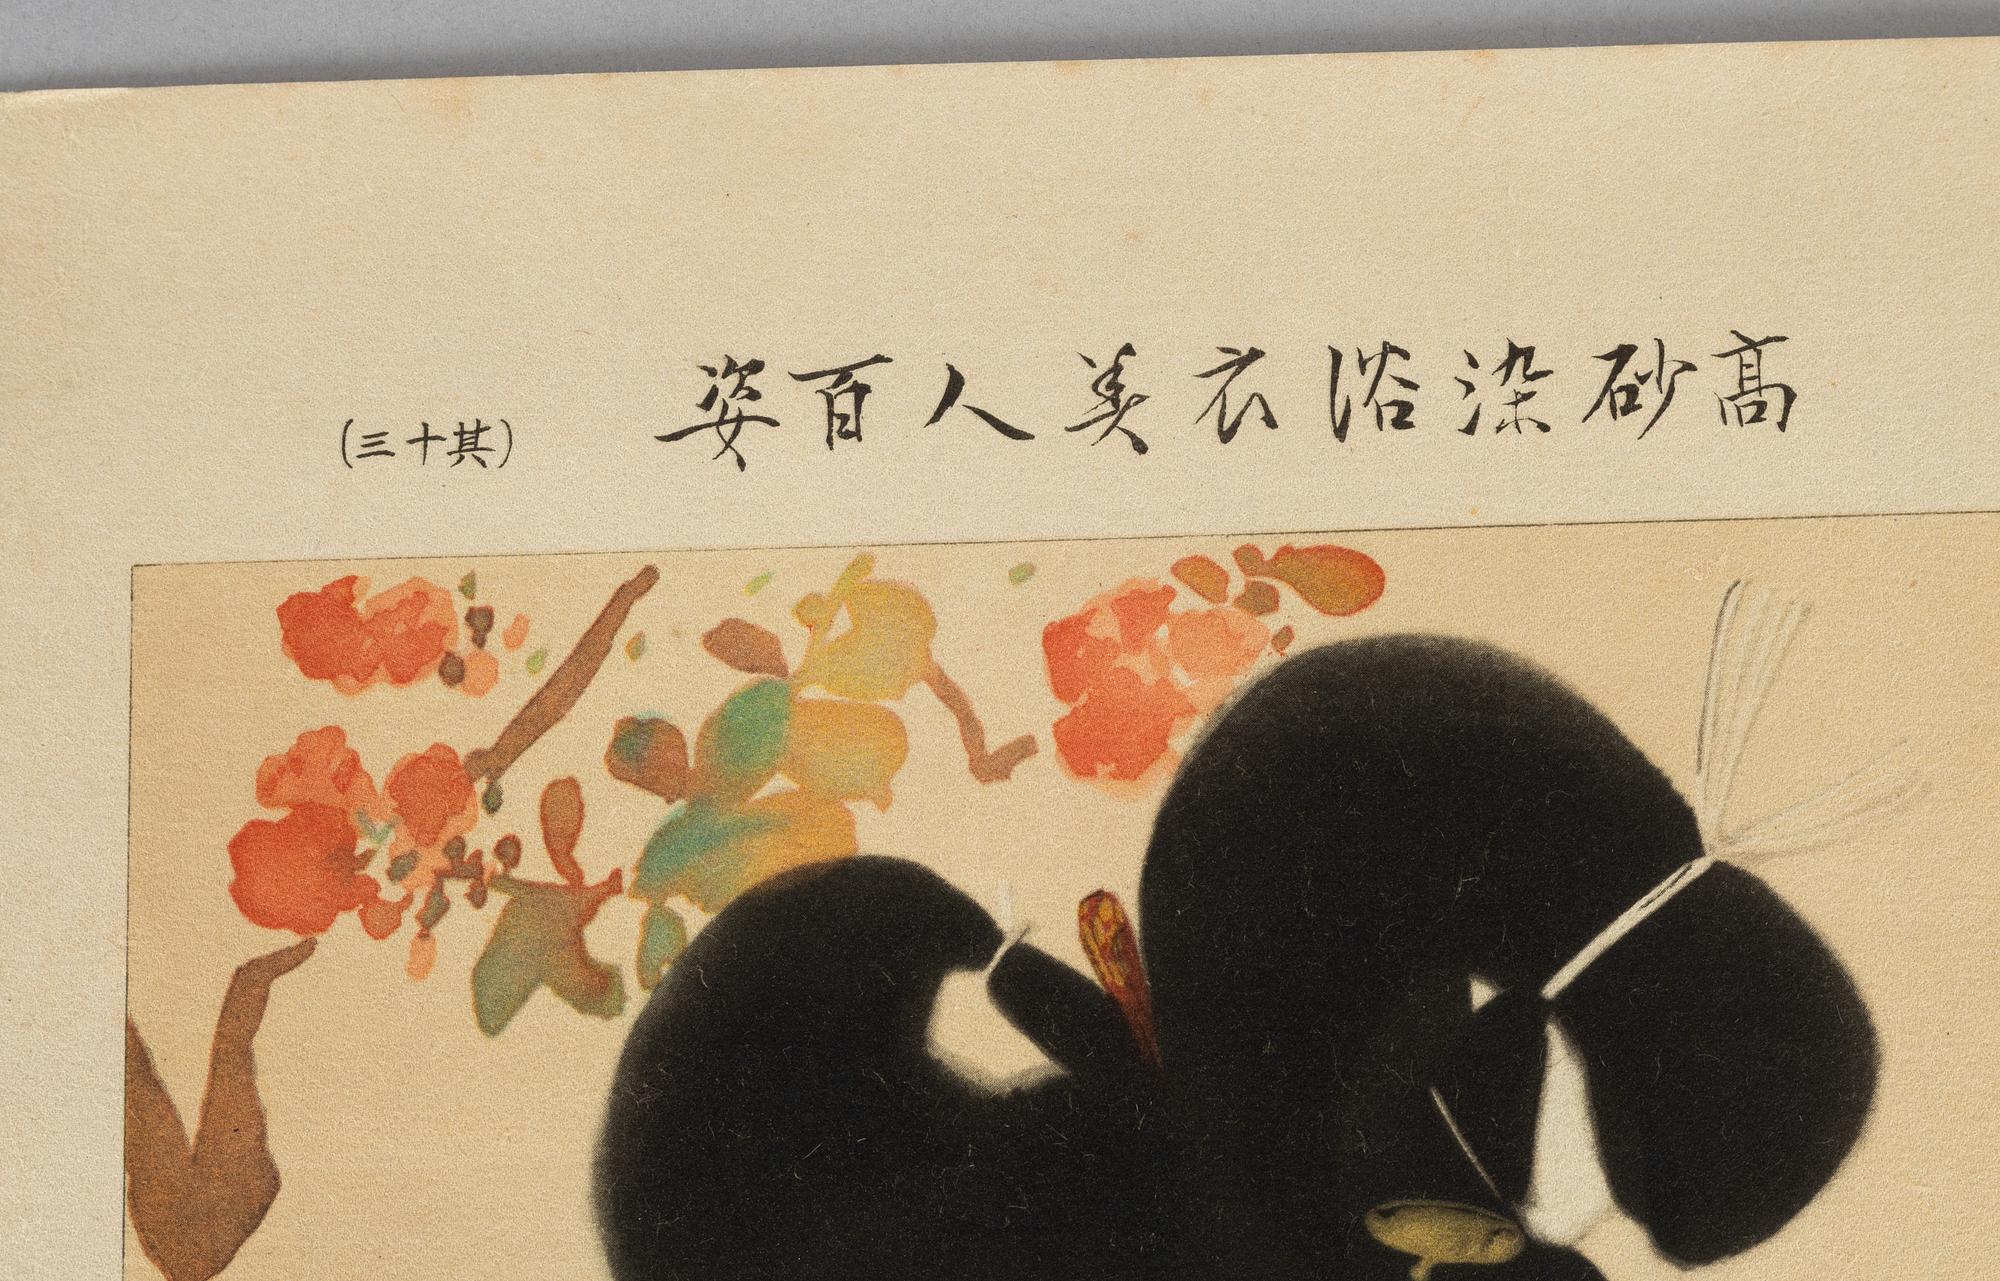 髙砂染浴衣美人百姿 (其十三)